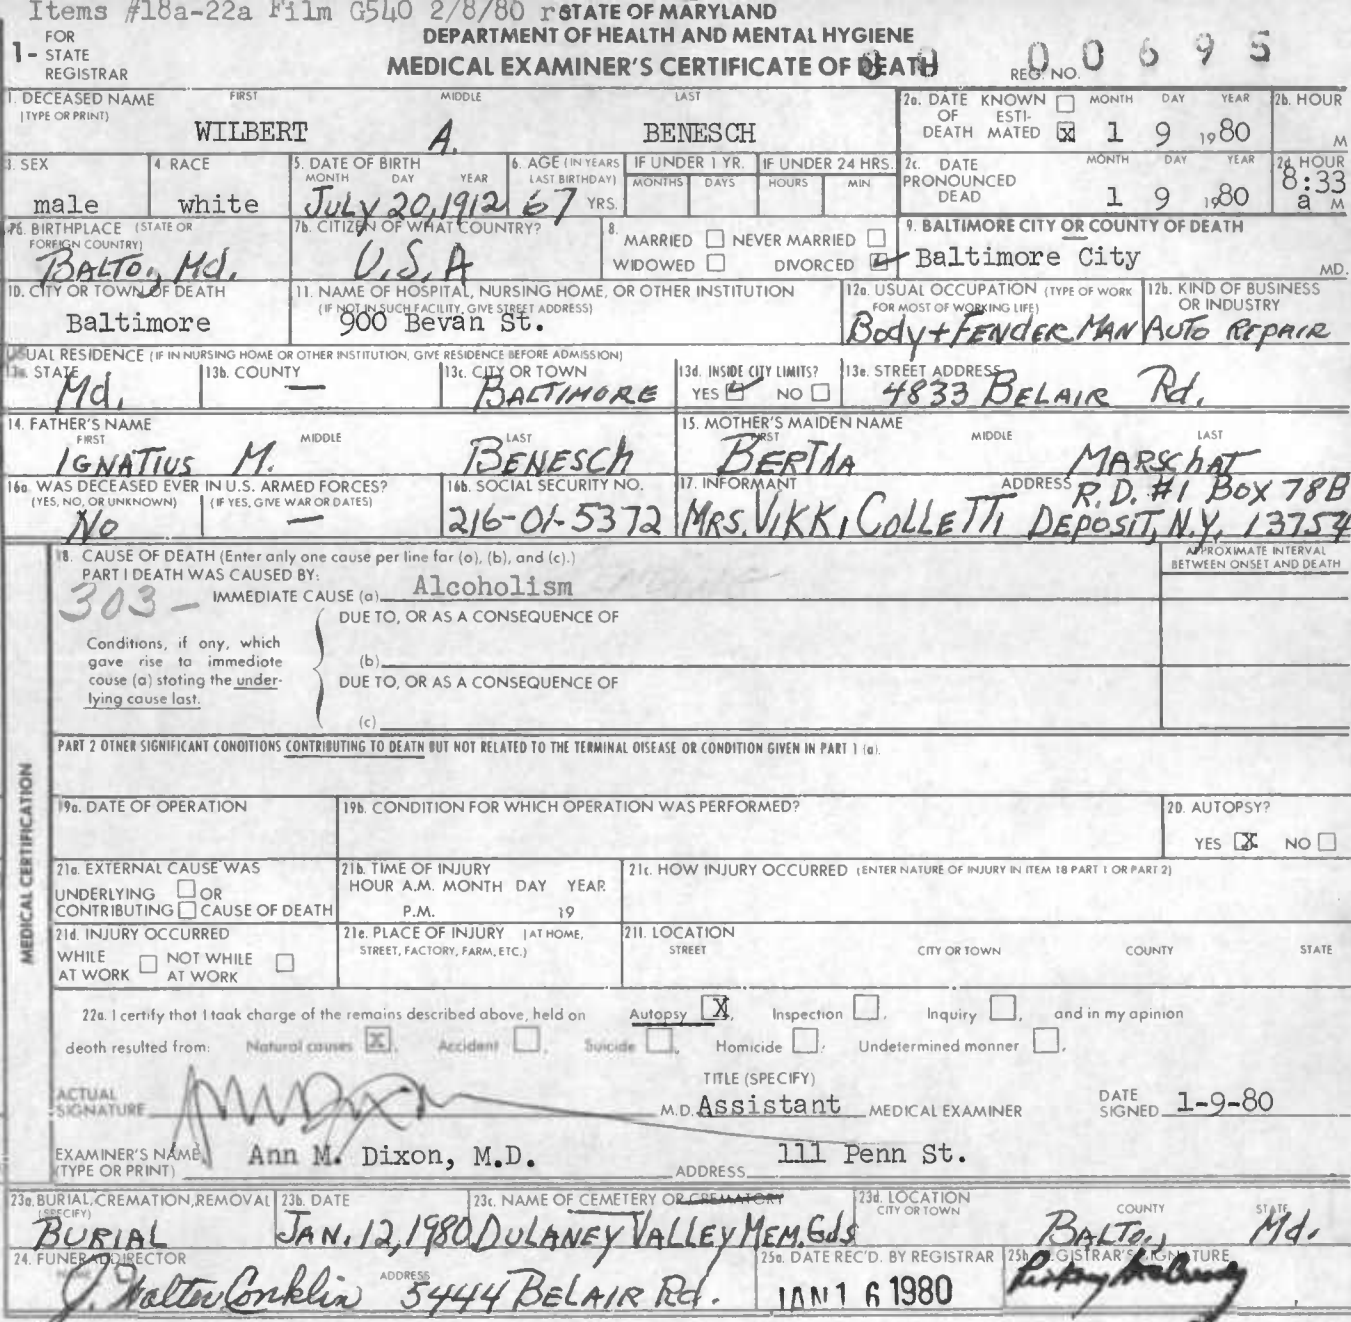 Items #18a-22a Film G540 2/8/80
STATE OF MARYLAND
DEPARTMENT OF HEALTH AND MENTAL HYGIENE
MEDICAL EXAMINER'S CERTIFICATE OF DEATH
1- FOR STATE REGISTRAR
REG. NO. 00695
1. DECEASED NAME (TYPE OR PRINT) FIRST MIDDLE LAST
WILBERT A. BENESCH
2a. DATE OF DEATH KNOWN ☐ ESTI-MATED ☒ MONTH DAY YEAR
1 9 1980
2b. HOUR M
3. SEX
male
4. RACE
white
5. DATE OF BIRTH MONTH DAY YEAR
July 20, 1912
6. AGE (IN YEARS LAST BIRTHDAY)
67 YRS.
IF UNDER 1 YR. MONTHS DAYS
IF UNDER 24 HRS. HOURS MIN
2c. DATE PRONOUNCED DEAD MONTH DAY YEAR
1 9 1980
2d. HOUR
8:33 a M
76. BIRTHPLACE (STATE OR FOREIGN COUNTRY)
BALTO., Md.
7b. CITIZEN OF WHAT COUNTRY?
U.S.A
8. MARRIED ☐ NEVER MARRIED ☐
WIDOWED ☐ DIVORCED ☑
9. BALTIMORE CITY OR COUNTY OF DEATH
Baltimore City MD.
10. CITY OR TOWN OF DEATH
Baltimore
11. NAME OF HOSPITAL, NURSING HOME, OR OTHER INSTITUTION
(IF NOT IN SUCH FACILITY, GIVE STREET ADDRESS)
900 Bevan St.
12a. USUAL OCCUPATION (TYPE OF WORK FOR MOST OF WORKING LIFE)
Body + FENDER MAN
12b. KIND OF BUSINESS OR INDUSTRY
AUTO REPAIR
USUAL RESIDENCE (IF IN NURSING HOME OR OTHER INSTITUTION, GIVE RESIDENCE BEFORE ADMISSION)
13a. STATE
Md.
13b. COUNTY
—
13c. CITY OR TOWN
BALTIMORE
13d. INSIDE CITY LIMITS?
YES ☑ NO ☐
13e. STREET ADDRESS
4833 BELAIR Rd.
14. FATHER'S NAME FIRST MIDDLE LAST
IGNATIUS M. BENESCh
15. MOTHER'S MAIDEN NAME FIRST MIDDLE LAST
BERTHA MARSChAT
16a. WAS DECEASED EVER IN U.S. ARMED FORCES?
(YES, NO, OR UNKNOWN) (IF YES, GIVE WAR OR DATES)
No —
16b. SOCIAL SECURITY NO.
216-01-5372
17. INFORMANT ADDRESS
MRS. VIKKI COLLETTI R.D. #1 BOX 78B
DEPOSIT, N.Y. 13754
MEDICAL CERTIFICATION
18. CAUSE OF DEATH (Enter only one cause per line for (a), (b), and (c).)
APPROXIMATE INTERVAL BETWEEN ONSET AND DEATH
PART I DEATH WAS CAUSED BY:
303 -
IMMEDIATE CAUSE (a) Alcoholism
DUE TO, OR AS A CONSEQUENCE OF
Conditions, if any, which gave rise to immediate cause (a) stating the under-lying cause last.
(b)
DUE TO, OR AS A CONSEQUENCE OF
(c)
PART 2 OTHER SIGNIFICANT CONDITIONS CONTRIBUTING TO DEATH BUT NOT RELATED TO THE TERMINAL DISEASE OR CONDITION GIVEN IN PART 1 (a).
19a. DATE OF OPERATION
19b. CONDITION FOR WHICH OPERATION WAS PERFORMED?
20. AUTOPSY?
YES ☒ NO ☐
21a. EXTERNAL CAUSE WAS
UNDERLYING ☐ OR
CONTRIBUTING ☐ CAUSE OF DEATH
21b. TIME OF INJURY
HOUR A.M. MONTH DAY YEAR
P.M. 19
21c. HOW INJURY OCCURRED (ENTER NATURE OF INJURY IN ITEM 18 PART 1 OR PART 2)
21d. INJURY OCCURRED
WHILE AT WORK ☐ NOT WHILE AT WORK ☐
21e. PLACE OF INJURY (AT HOME, STREET, FACTORY, FARM, ETC.)
21f. LOCATION
STREET CITY OR TOWN COUNTY STATE
22a. I certify that I took charge of the remains described above, held on Autopsy ☒, Inspection ☐, Inquiry ☐, and in my opinion
death resulted from: Natural causes ☒, Accident ☐, Suicide ☐, Homicide ☐, Undetermined manner ☐.
ACTUAL SIGNATURE
M.D. TITLE (SPECIFY) Assistant MEDICAL EXAMINER
DATE SIGNED 1-9-80
EXAMINER'S NAME (TYPE OR PRINT) Ann M. Dixon, M.D.
ADDRESS 111 Penn St.
23a. BURIAL, CREMATION, REMOVAL (SPECIFY)
BURIAL
23b. DATE
JAN. 12, 1980
23c. NAME OF CEMETERY OR CREMATORY
DULANEY VALLEY MEM. Gds
23d. LOCATION CITY OR TOWN COUNTY STATE
BALTO., Md.
24. FUNERAL DIRECTOR
NAME J. Walter Conklin ADDRESS 5444 BELAIR Rd.
25a. DATE REC'D. BY REGISTRAR
JAN 16 1980
25b. REGISTRAR'S SIGNATURE